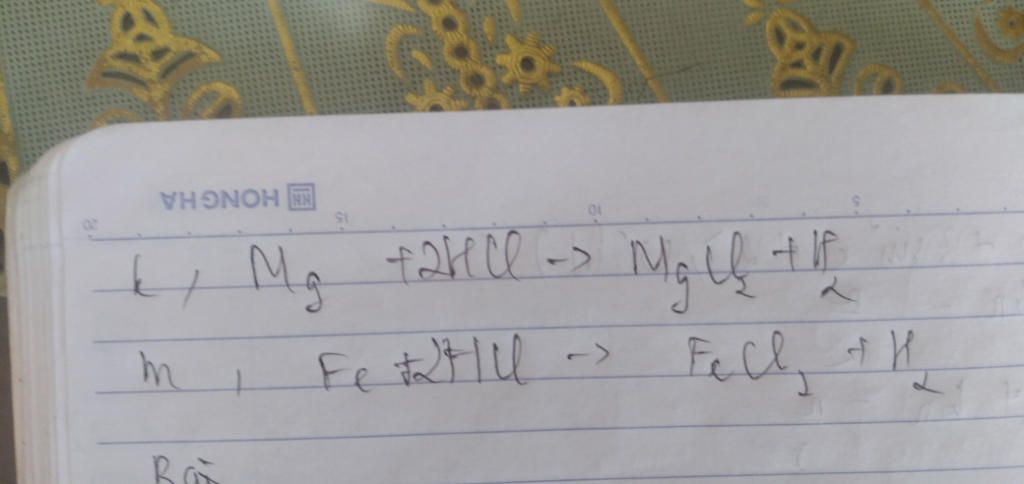 HONG HA
20 15 10 5
k, Mg +2HCl -> MgCl2 + H2
m, Fe +2HCl -> FeCl2 + H2
Bài